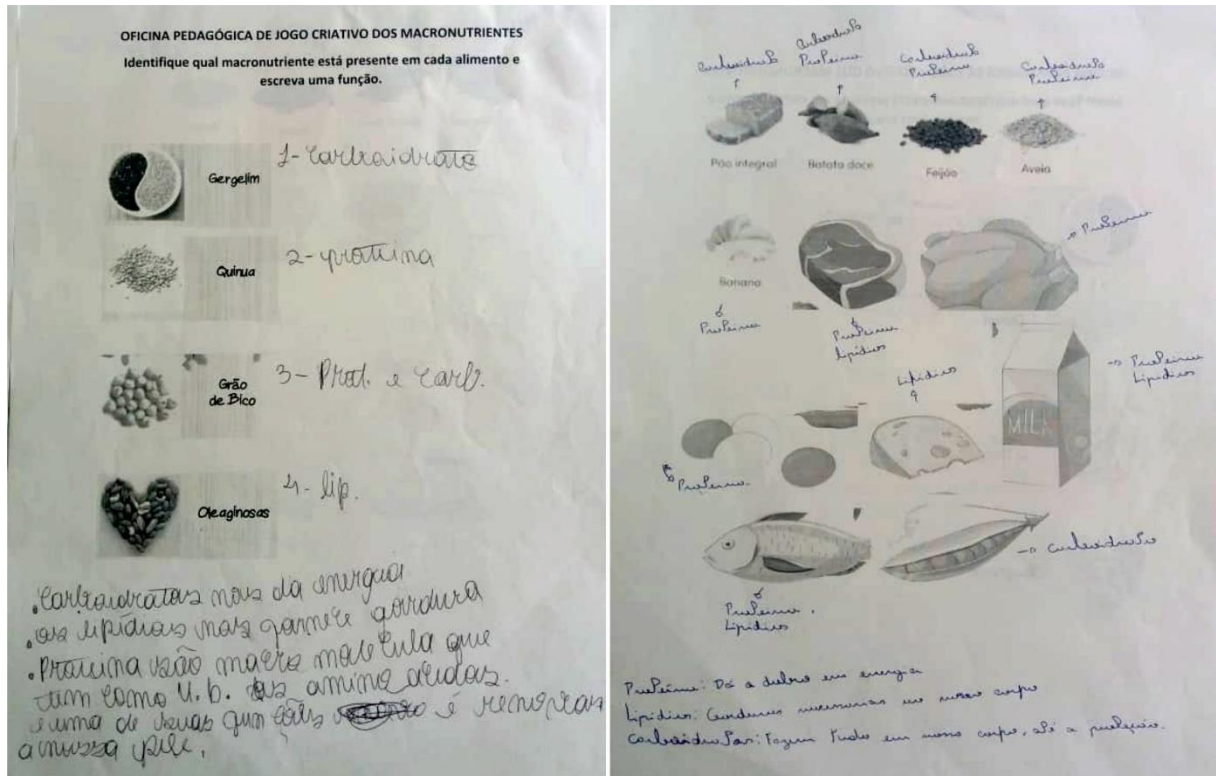 OFICINA PEDAGÓGICA DE JOGO CRIATIVO DOS MACRONUTRIENTES
Identifique qual macronutriente está presente em cada alimento e
escreva uma função.
Gergelim 1- Carboidrato
Quinua 2- proteina
Grão
de Bico 3- Prot. e Carb.
Oleaginosas 4- lip.
. Carboidratos nos da energia
. os lipídios nos garante gordura
. Proteina são macro molécula que
tem como U. b. os amino acidos.
e uma de suas é renovar
a nossa pele.
Carboidrato
Carboidrato
Proteina
Carboidrato
Proteina
Carboidrato
Proteina
Pão integral
Batata doce
Feijão
Aveia
Banana
Proteina
Proteina
Lipídios
Proteina
Proteina
Lipidios
Lipídios
MILK
Proteina
Lipidios
Proteina.
Carboidrato
Proteina:  Dá o em energia
Lipidios:  necessarias em nosso corpo
Carboidratos: Fazem Tudo em nosso corpo, até a proteção.